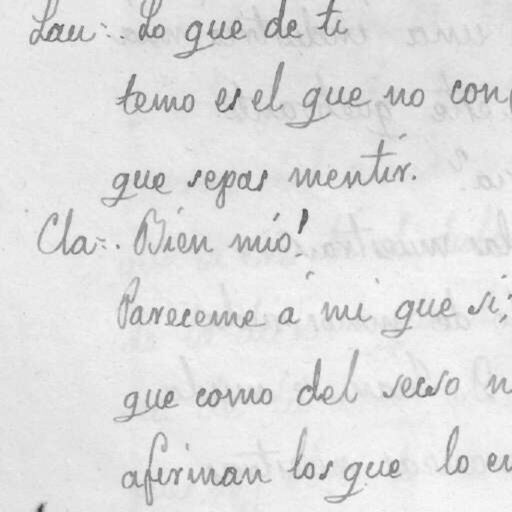 Lau=. Lo que de ti
temo es el que no con
que sepas mentir.
Cla=. Bien mío!
Pareceme á mi que si;
que como del secso
afirman los que lo en